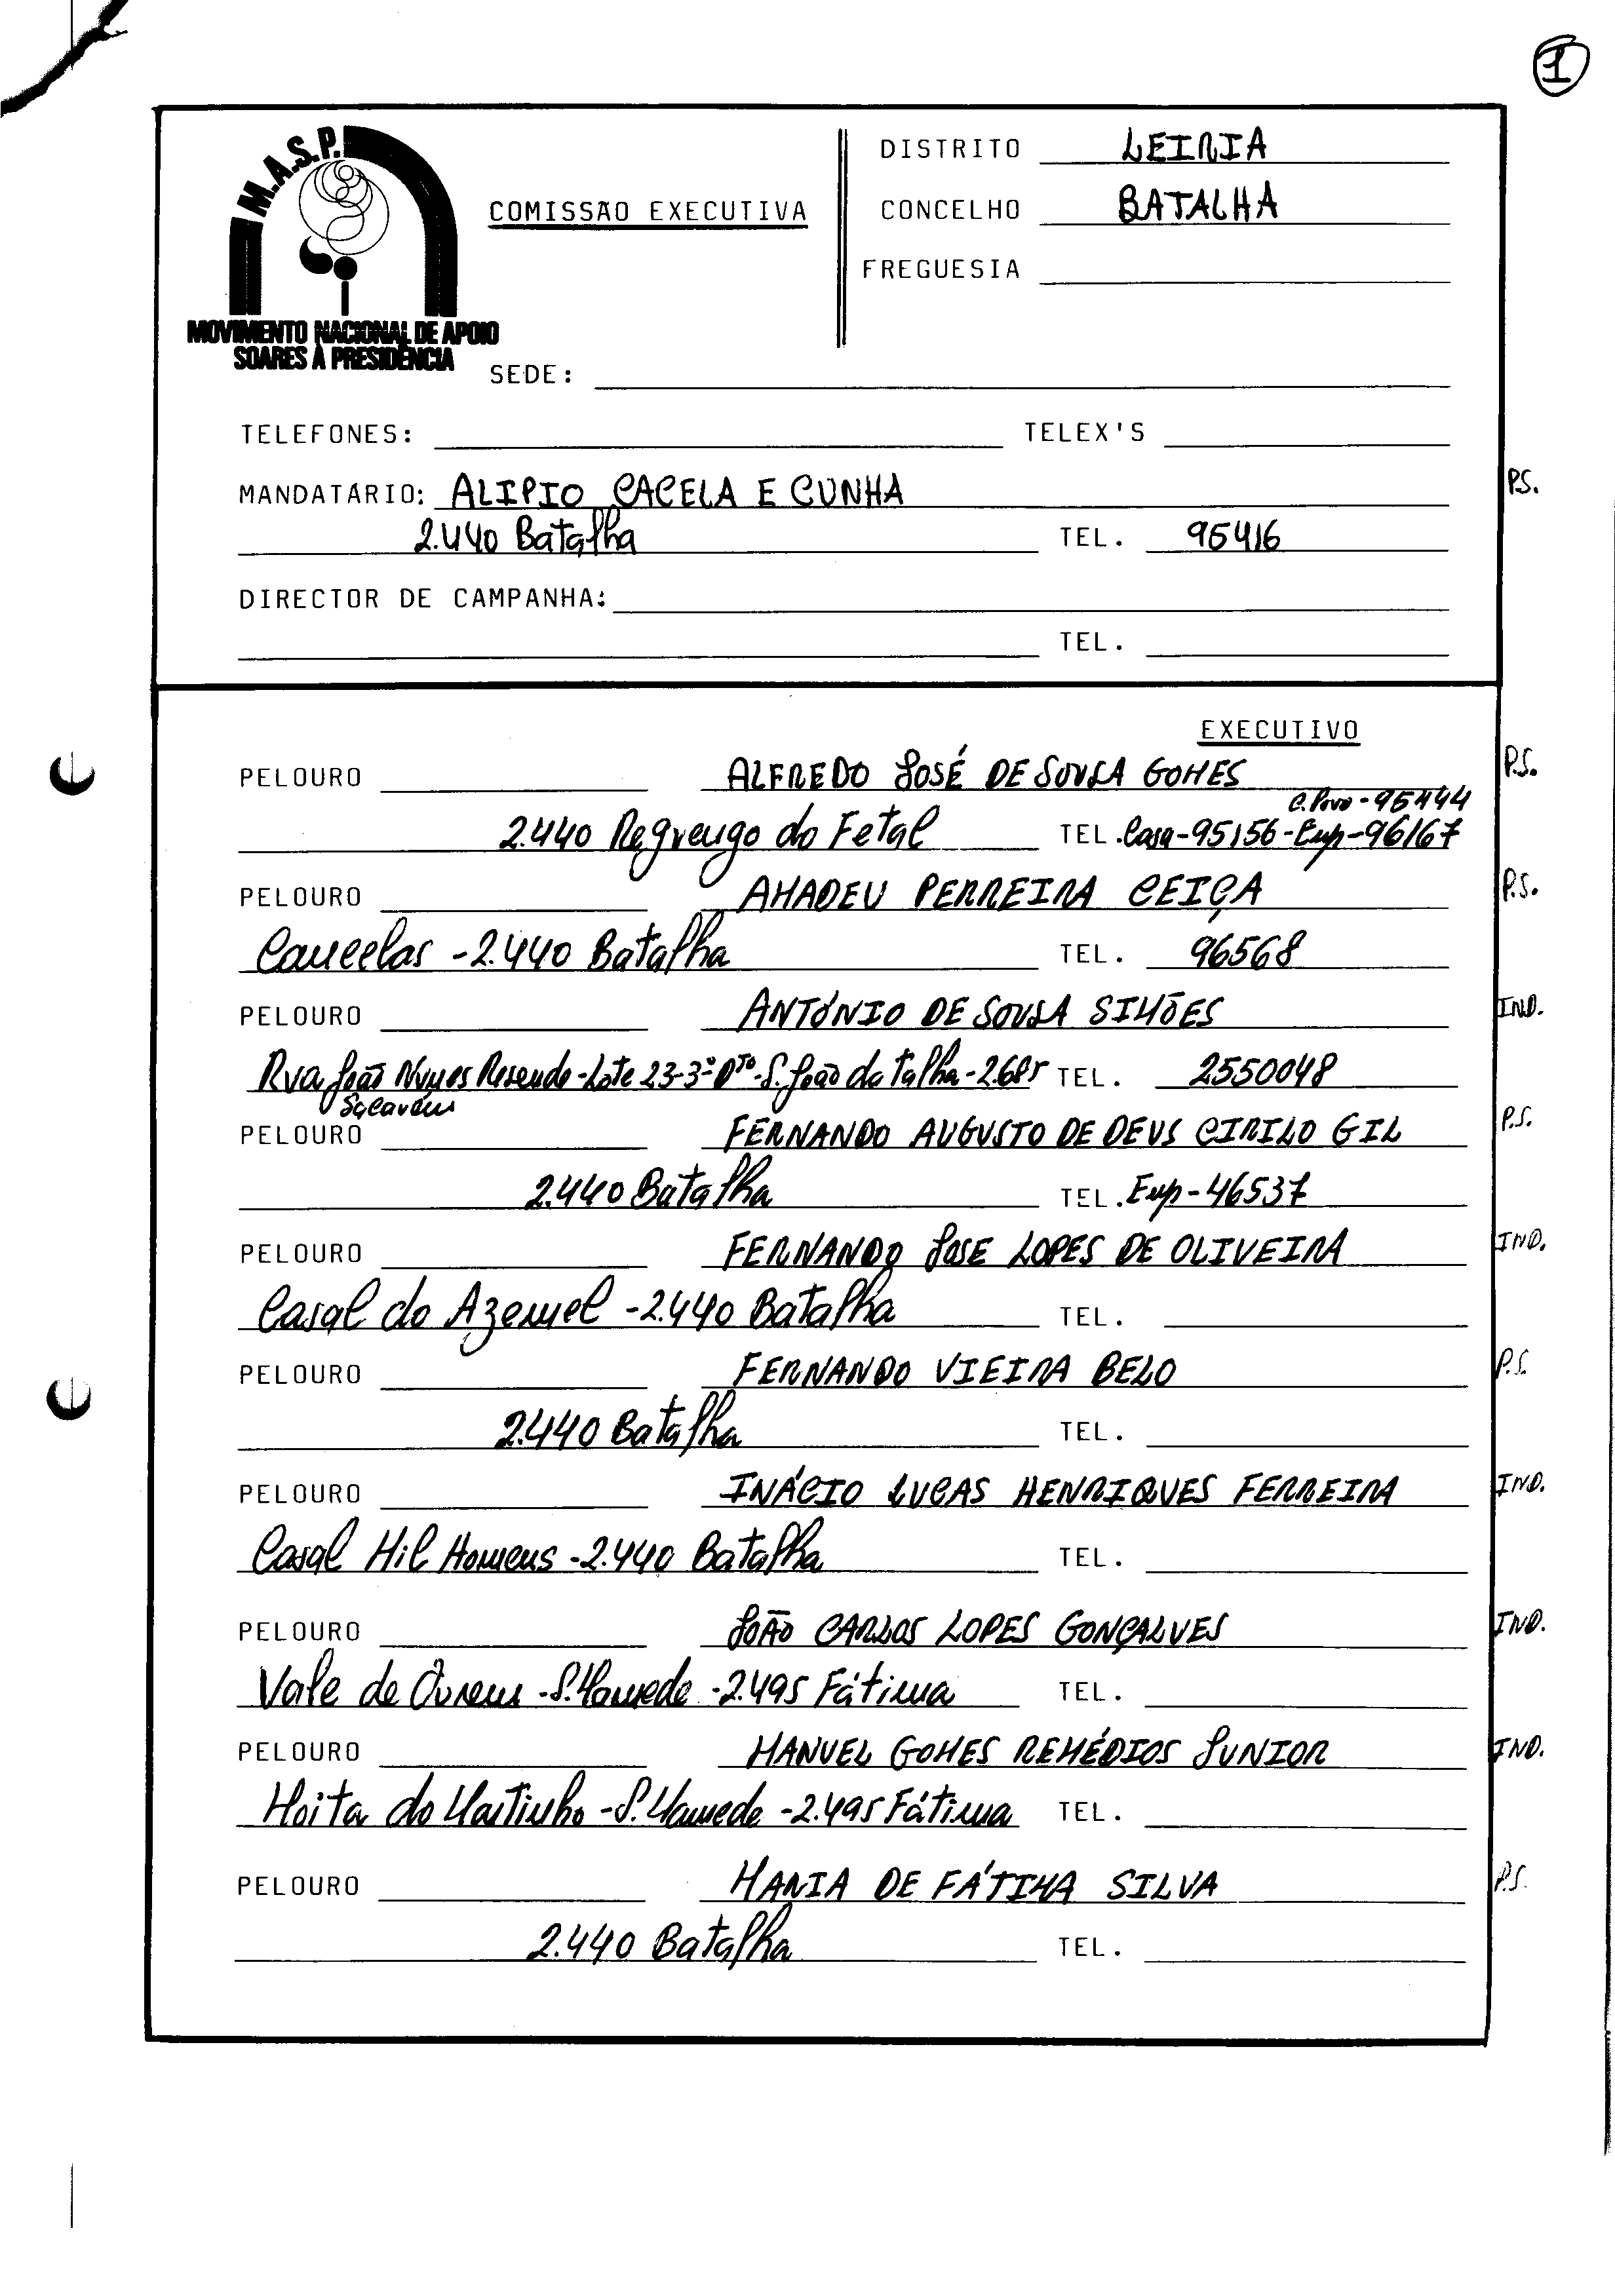 1
M.A.S.P.
MOVIMENTO NACIONAL DE APOIO
SOARES À PRESIDÊNCIA
COMISSÃO EXECUTIVA
DISTRITO LEIRIA
CONCELHO BATALHA
FREGUESIA
SEDE:
TELEFONES: TELEX'S
MANDATÁRIO: ALIPIO CACELA E CUNHA P.S.
2.440 Batalha TEL. 95416
DIRECTOR DE CAMPANHA:
TEL.
EXECUTIVO
PELOURO ALFREDO JOSÉ DE SOUSA GOMES P.S.
C. Povo - 95444
2.440 Reguengo do Fetal TEL. Casa - 95156 - Emp - 96167
PELOURO AMADEU PERREIRA CEIÇA P.S.
Cancelas - 2.440 Batalha TEL. 96568
PELOURO ANTÓNIO DE SOUSA SIMÕES IND.
Rua João Nunes Resende - Lote 23-3º Dto - S. João da Talha - 2685 TEL. 2550048
Sacavém
PELOURO FERNANDO AUGUSTO DE DEUS CIRILO GIL P.S.
2.440 Batalha TEL. Emp - 46537
PELOURO FERNANDO JOSE LOPES DE OLIVEIRA IND.
Casal do Azemel - 2.440 Batalha TEL.
PELOURO FERNANDO VIEIRA BELO P.S.
2.440 Batalha TEL.
PELOURO INÁCIO LUCAS HENRIQUES FERREIRA IND.
Casal Mil Homens - 2.440 Batalha TEL.
PELOURO JOÃO CARLOS LOPES GONÇALVES IND.
Vale de Ourem - S. Mamede - 2.495 Fátima TEL.
PELOURO MANUEL GOMES REMÉDIOS JUNIOR IND.
Moita do Martinho - S. Mamede - 2.495 Fátima TEL.
PELOURO MARIA DE FÁTIMA SILVA P.S.
2.440 Batalha TEL.